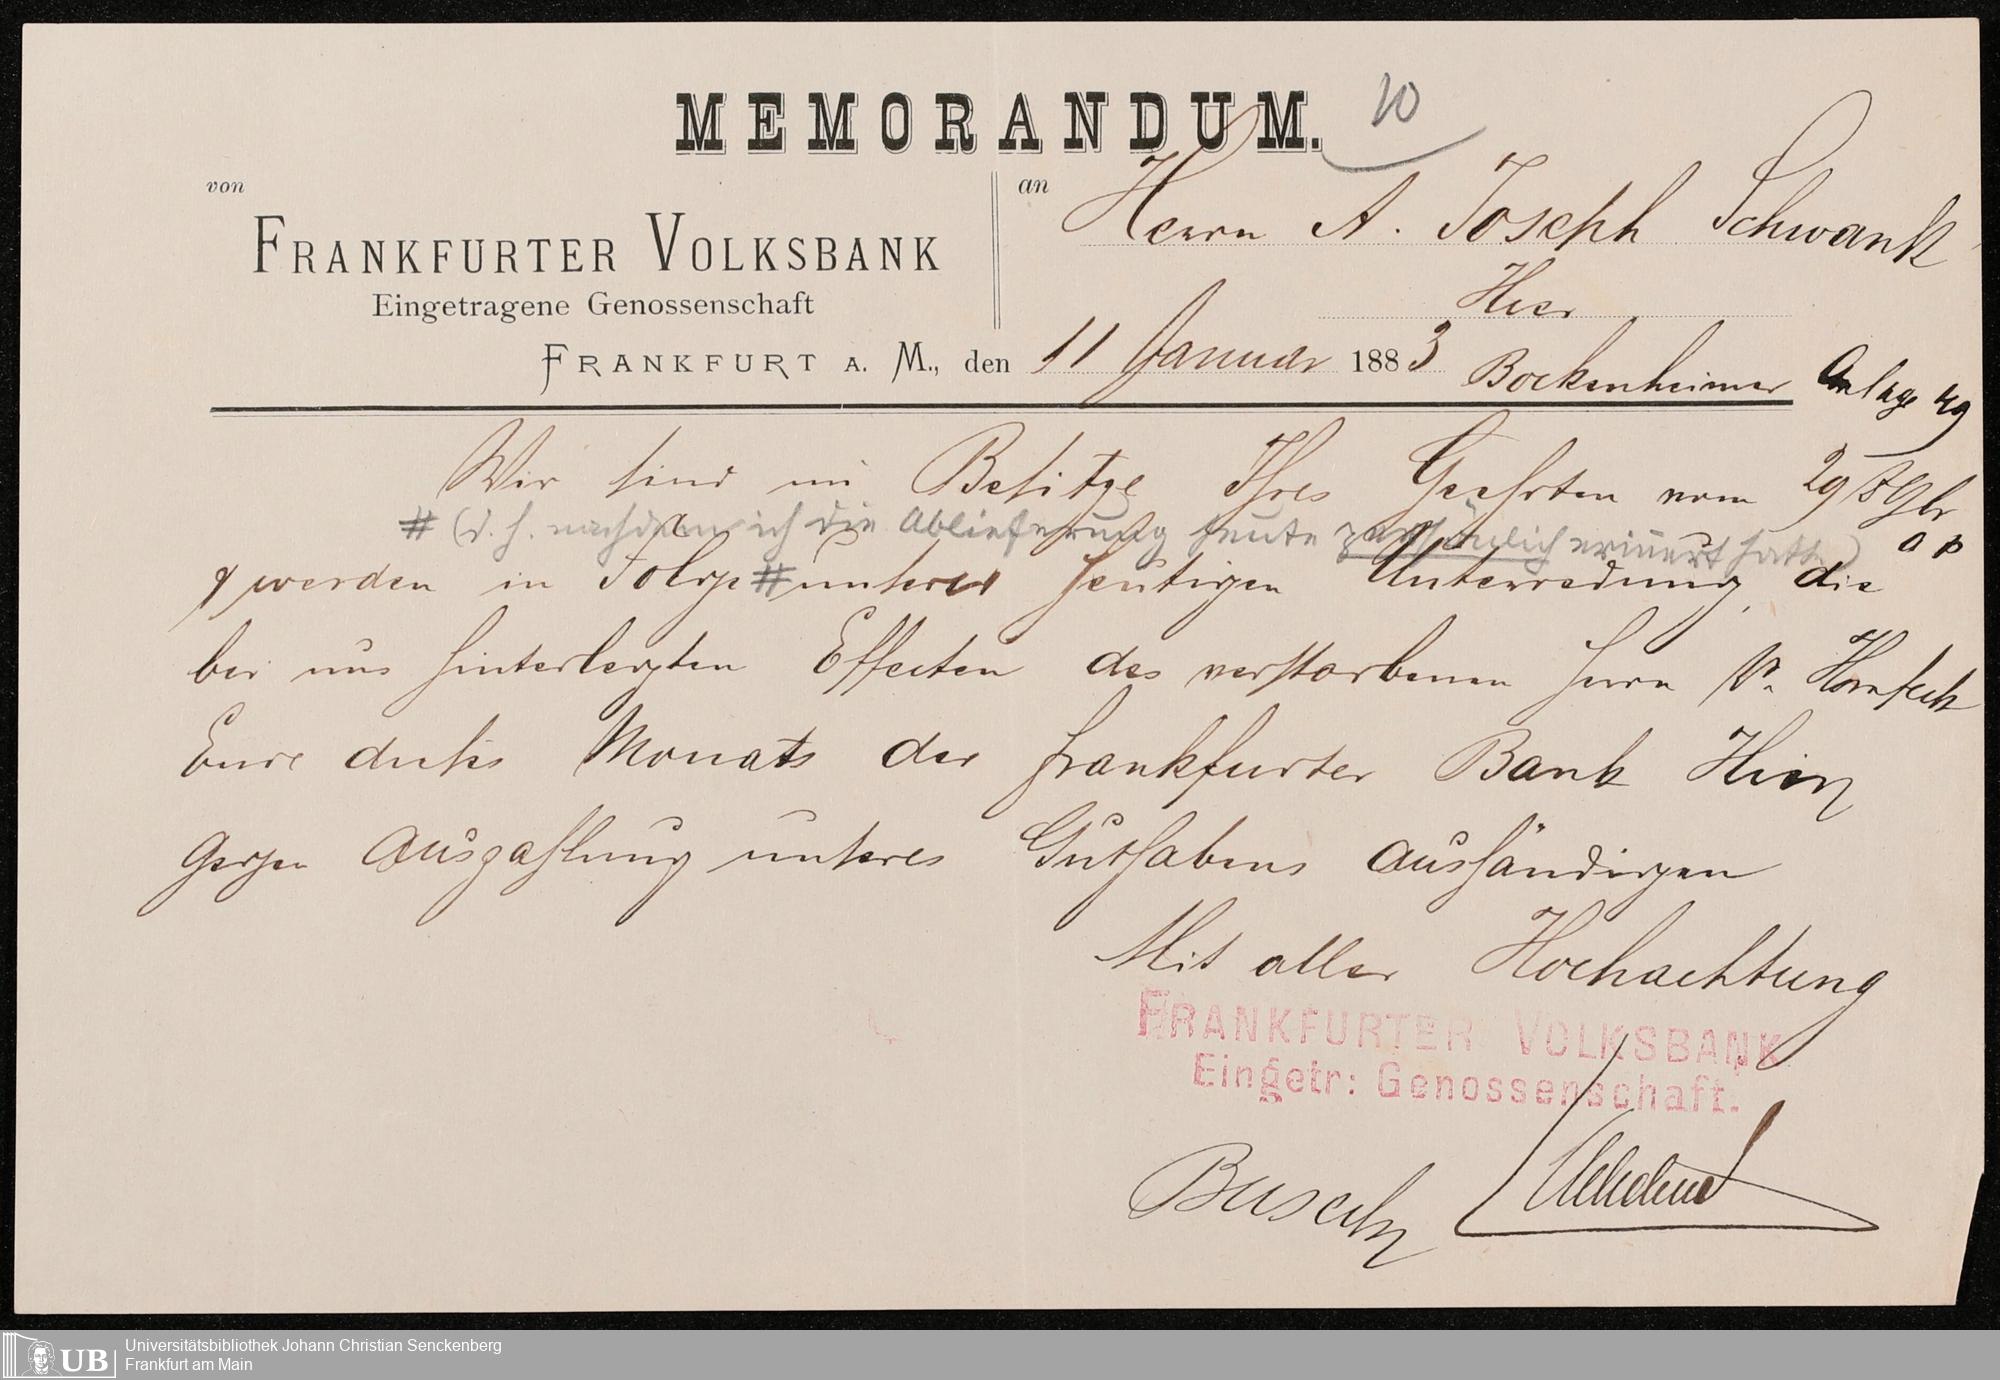 MEMORANDUM.
10
von
FRANKFURTER VOLKSBANK
Eingetragene Genossenschaft
an Herrn A. Joseph Schwank
Hier
FRANKFURT A. M., den 11 Januar 1883 Bockenheimer Anlage 49
Wir sind im Besitze Ihres Geehrten vom 29
# (d. h. nachdem ich die Ablieferung heute persönlich erinnert hatte)
& werden in Folge # unserer heutigen Unterredung die
bei uns hinterlegten Effecten des verstorbenen Herrn W. Hornfeck
Ende dieses Monats der Frankfurter Bank Hier
gegen Auszahlung unseres Guthabens aushändigen
Mit aller Hochachtung
FRANKFURTER VOLKSBANK
Eingetr: Genossenschaft.
Busch
Universitätsbibliothek Johann Christian Senckenberg
UB
Frankfurt am Main